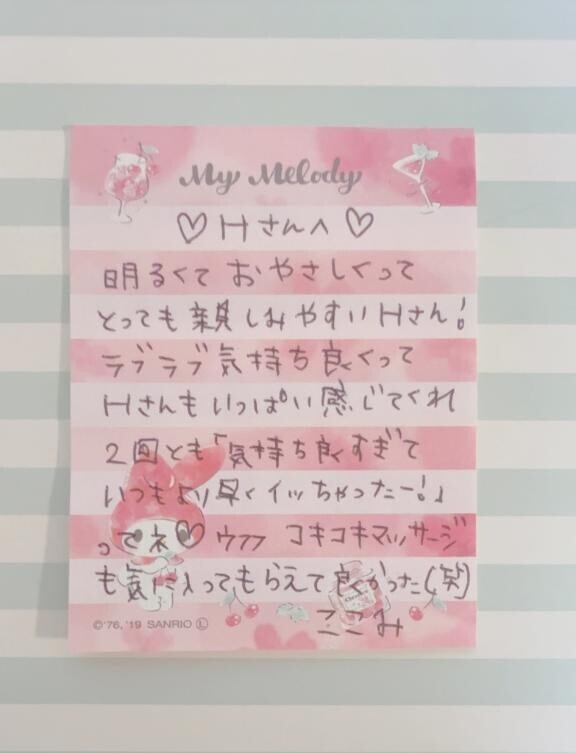 My Melody
♡Hさんへ♡
明るくて おやさしくって
とっても親しみやすいHさん!
ラブラブ気持ち良くって
Hさんもいっぱい感じてくれ
2回とも「気持ち良すぎて
いつもより早くイッちゃったー!」
ってネ♡ウフフ コキコキマッサージ
も気に入ってもらえて良かった(笑)
ここみ
©'76, '19 SANRIO Ⓛ